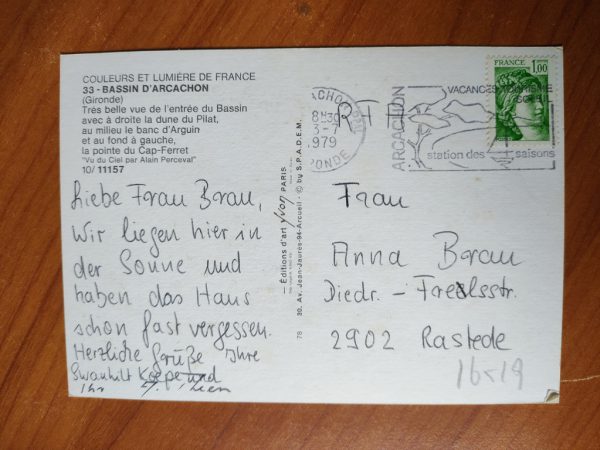 COULEURS ET LUMIÈRE DE FRANCE
33 - BASSIN D'ARCACHON
(Gironde)
Très belle vue de l'entrée du Bassin
avec à droite la dune du Pilat,
au milieu le banc d'Arguin
et au fond à gauche,
la pointe du Cap-Ferret
"Vu du Ciel par Alain Perceval"
10/ 11157
Liebe Frau Brau,
Wir liegen hier in
der Sonne und
haben das Haus
schon fast vergessen.
Herzliche Grüße Ihre
Swanhilt
Ihr
— Éditions d'art yvon PARIS
30, Av. Jean-Jaurès-94-Arcueil - © by S.P.A.D.E.M.
78
18H30
3-7
1979
GIRONDE
ARCACHON
VACANCES
station des 4 saisons
FRANCE
1,00
Frau
Anna Brau
Diedr. -
2902 Rastede
16-19